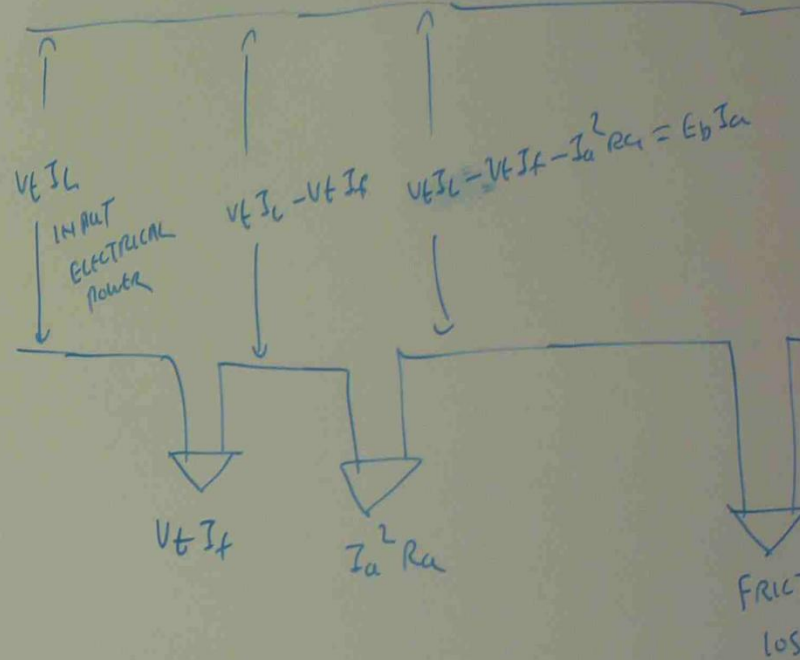 VtIL
INPUT
ELECTRICAL
POWER
VtIL - VtIf
VtIL - VtIf - Ia²Ra = EbIa
VtIf
Ia²Ra
FRICT
LOS